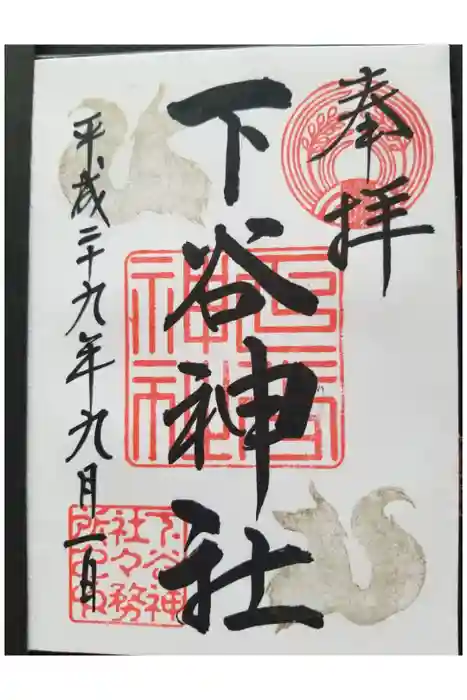 奉拝
下谷神社
平成二十九年九月一日
下谷神社
下谷神社々務所之印